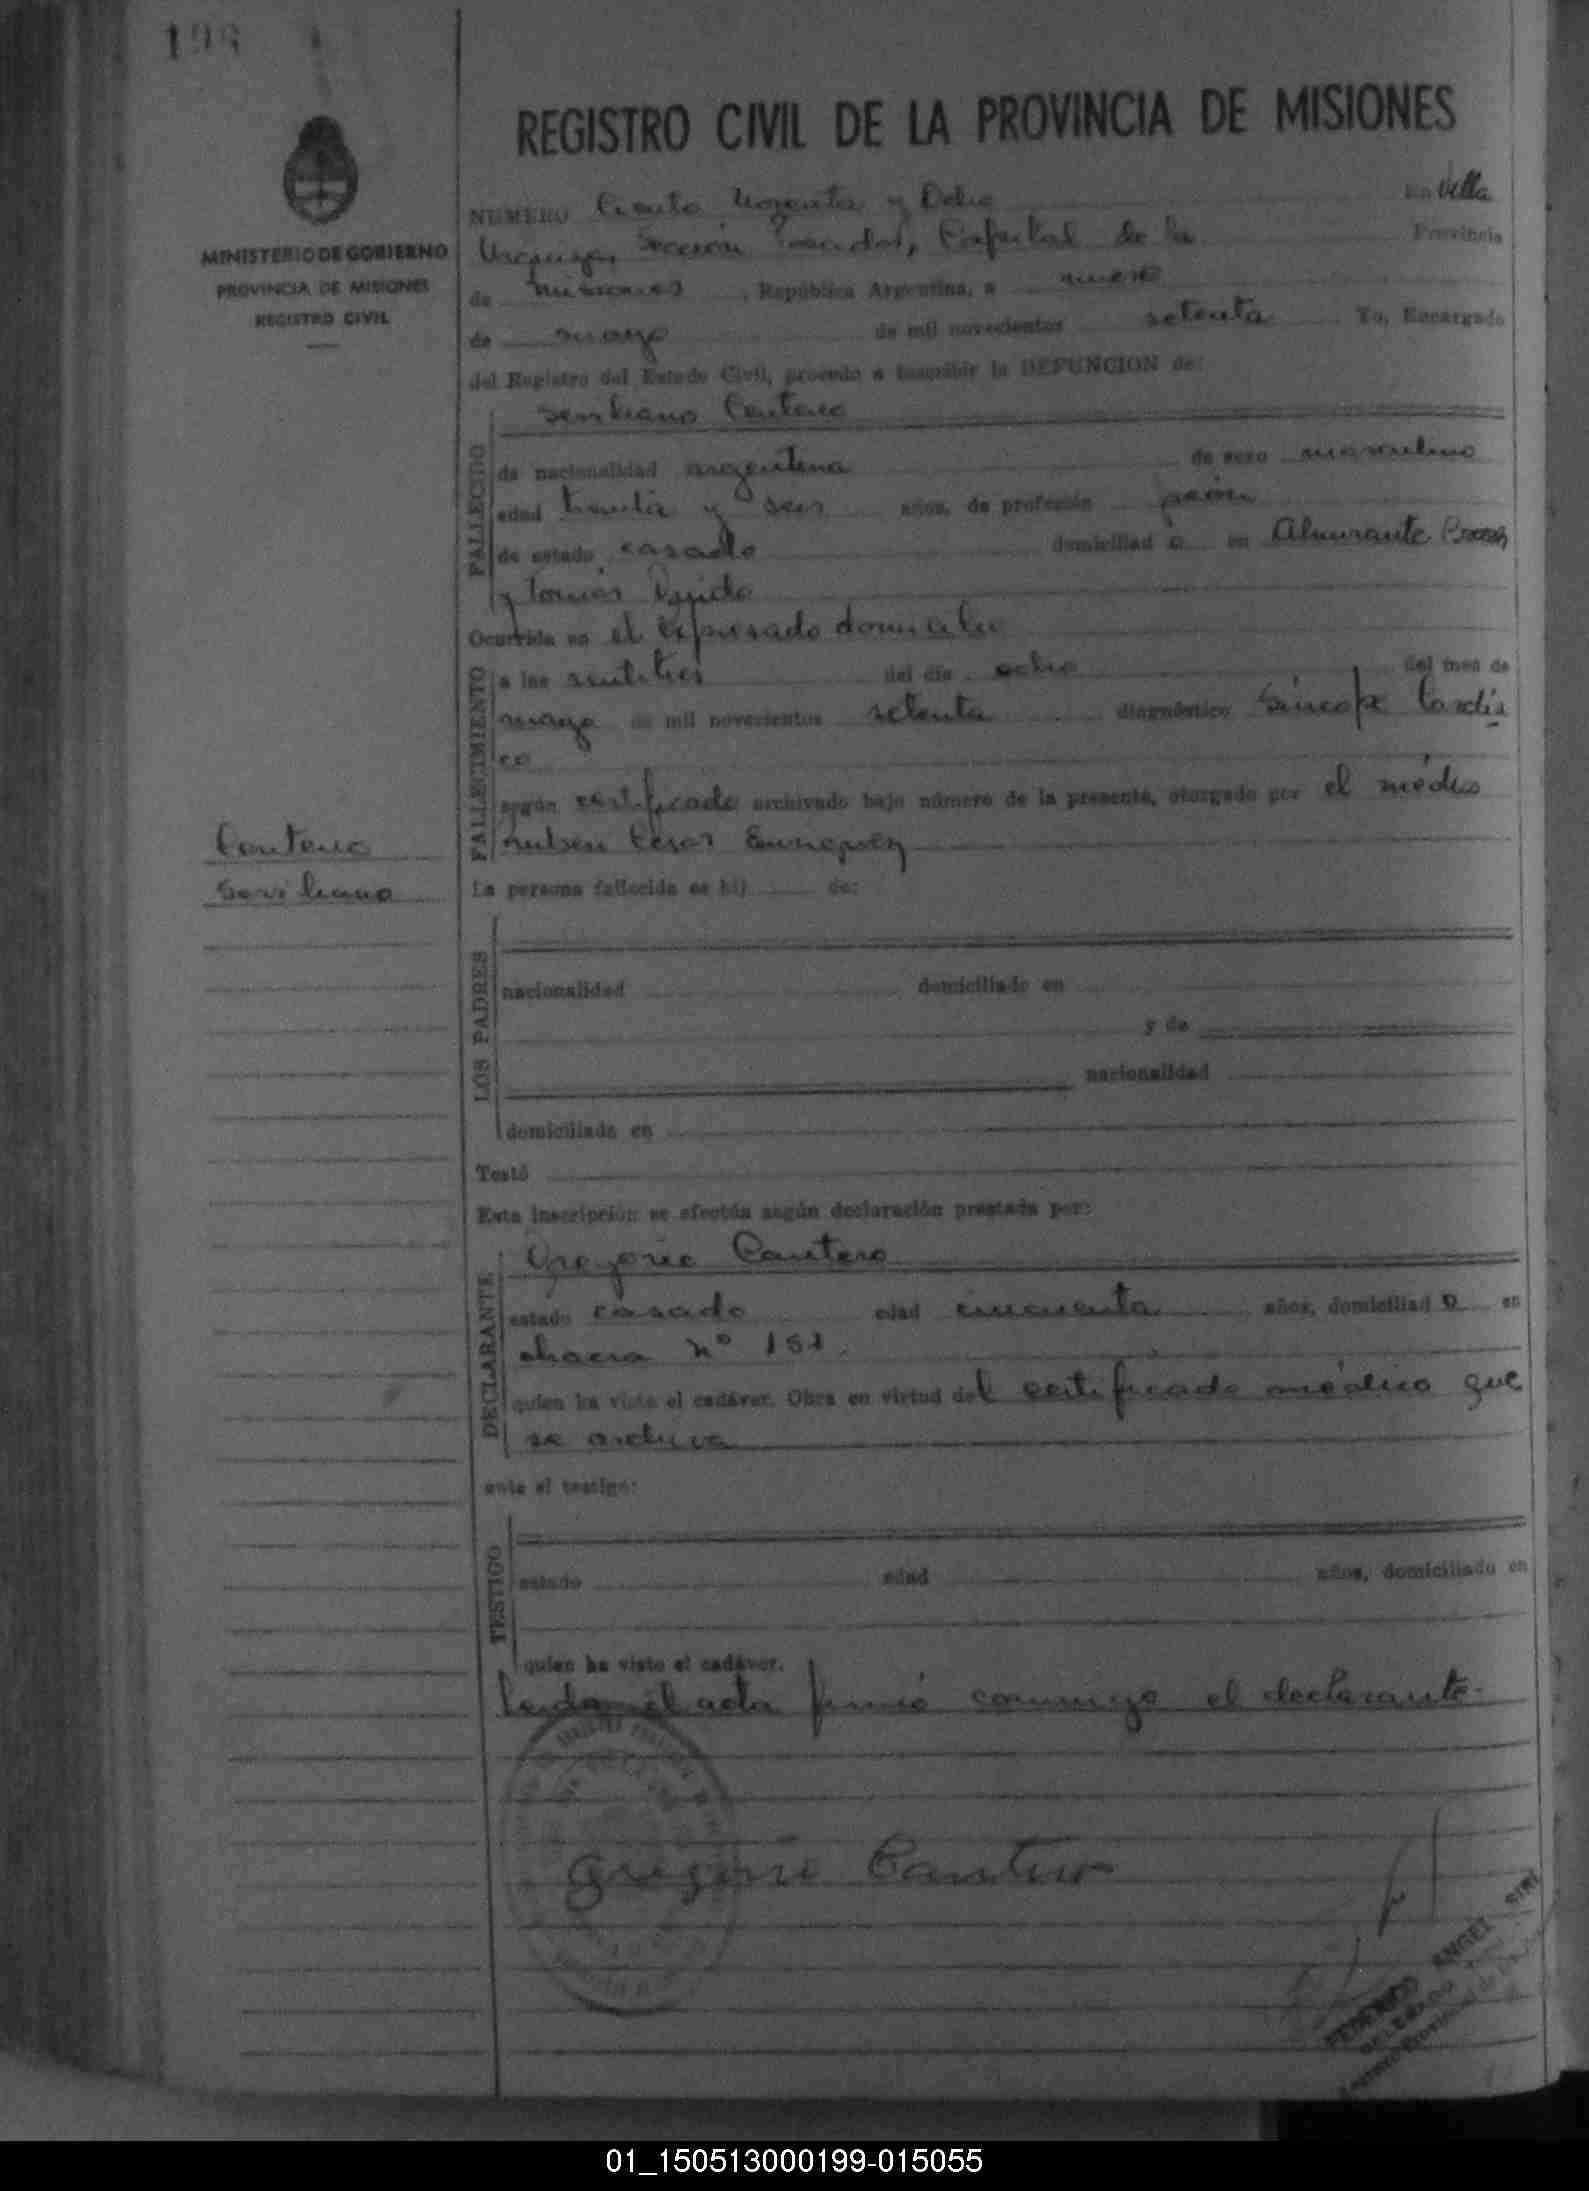 198
REGISTRO CIVIL DE LA PROVINCIA DE MISIONES
MINISTERIO DE GOBIERNO
PROVINCIA DE MISIONES
REGISTRO CIVIL
NUMERO Ciento Noventa y Ocho En Villa
Urquiza, Sección Posadas, Capital de la Provincia
de Misiones, República Argentina, a nueve
de mayo de mil novecientos setenta Yo, Encargado
del Registro del Estado Civil, procedo a inscribir la DEFUNCION de:
FALLECIDO
Serviliano Centeno
de nacionalidad argentina de sexo masculino
edad treinta y seis años, de profesión peón
de estado casado domiciliad o en Almirante Brown
y Tomás Guido
Ocurrida en el expresado domicilio
FALLECIMIENTO
a las veintitres del día ocho del mes de
mayo de mil novecientos setenta diagnóstico Síncope Cardía
co
según certificado archivado bajo número de la presente, otorgado por el médico
Ruben Cesar Enriquez
Centeno
Serviliano
La persona fallecida es hij de:
LOS PADRES
nacionalidad domiciliado en
y de
nacionalidad
domiciliada en
Testó
Esta inscripción se efectúa según declaración prestada por:
DECLARANTE
Gregorio Cantero
estado casado edad cincuenta años, domiciliad o en
chacra nº 151.
quien ha visto el cadáver. Obra en virtud del certificado médico que
se archiva
ante el testigo:
TESTIGO
estado edad años, domiciliado en
quien ha visto el cadáver.
Leida el acta firmó conmigo el declarante.
Gregorio Cantero
FEDERICO ANGEL
DELEGADO
01_150513000199-015055